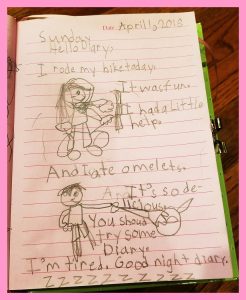 Date: April 1, 2018
Sunday
Hello Diary,
I rode my bike today.
It was fun.
I had a Little
help.
And I ate omelets.
It's so de-
licious.
You should
try some
Diary.
I'm tired. Good night diary.
Z Z Z Z Z Z Z Z Z Z